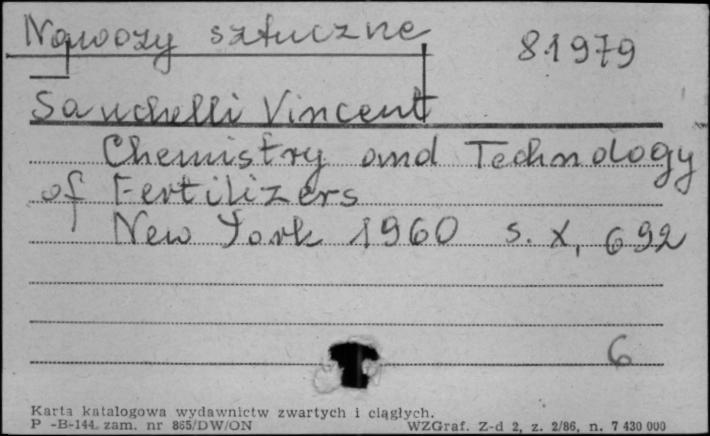 Nawozy sztuczne
81979
Sauchelli Vincent
Chemistry and Technology
of Fertilizers
New York 1960 s. X, 692
6
Karta katalogowa wydawnictw zwartych i ciągłych.
P -B-144. zam. nr 865/DW/ON WZGraf. Z-d 2, z. 2/86, n. 7 430 000